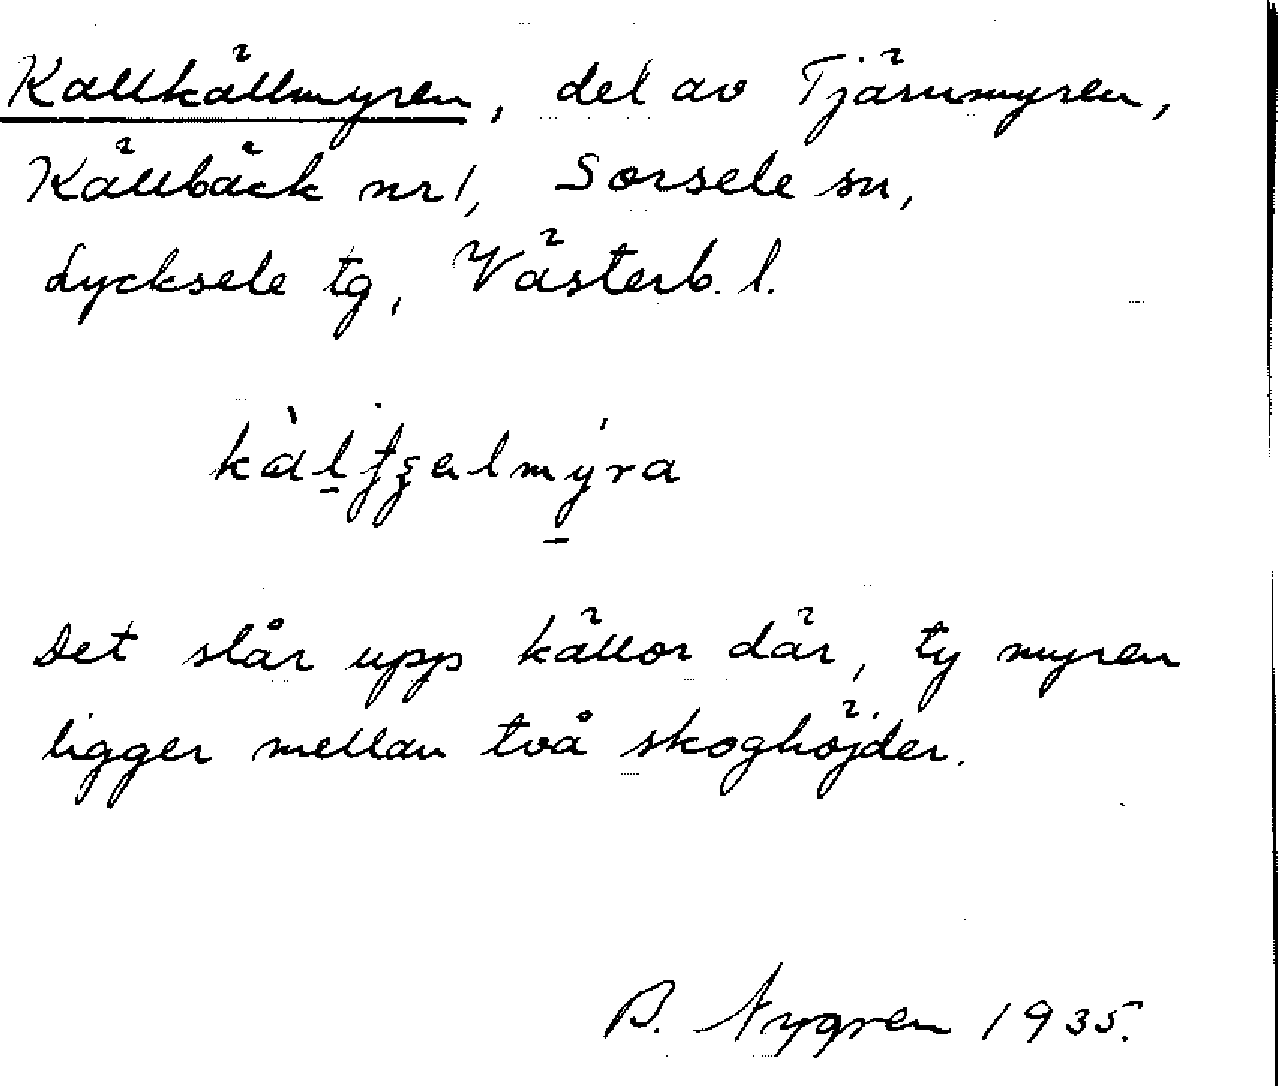 Kallkällmyren, del av Tjärnmyren,
Källbäck nr 1, Sorsele sn,
Lycksele tg, Västerb. l.
Det slår upp källor där, ty myren
ligger mellan två skoghöjder.
B. Nygren 1935.